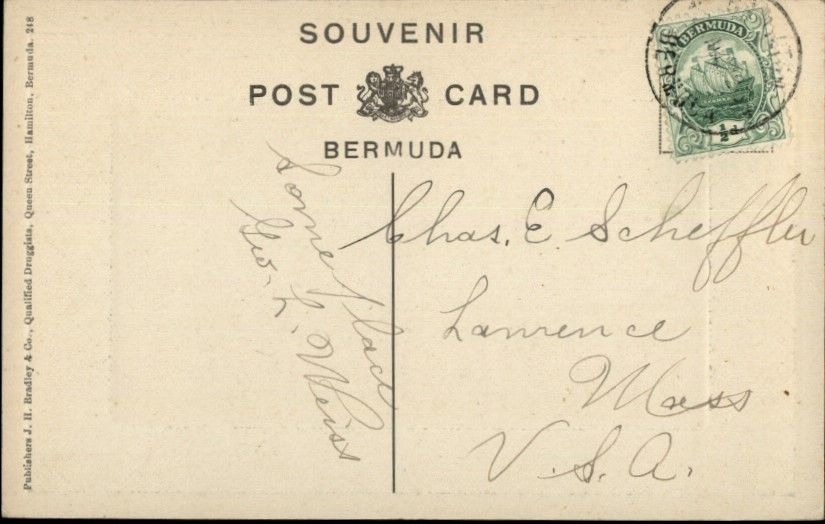 SOUVENIR
POST CARD
BERMUDA
BERMUDA
½d
Some place
Geo. L. Weiss
Chas. E. Scheffler
Lawrence
Mass
U.S.A.
Publishers J. H. Bradley & Co., Qualified Druggists, Queen Street, Hamilton, Bermuda. 248